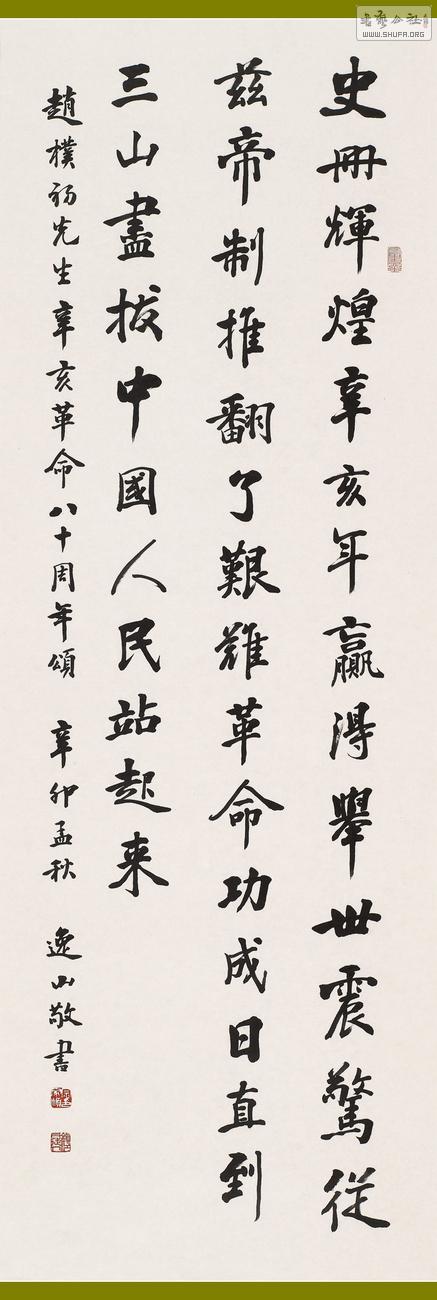 史冊輝煌辛亥年贏得舉世震驚從
茲帝制推翻了艱難革命功成日直到
三山盡拔中國人民站起来
趙樸初先生辛亥革命八十周年頌 辛卯孟秋 逸山敬書
書藝公社
www.SHUFA.ORG